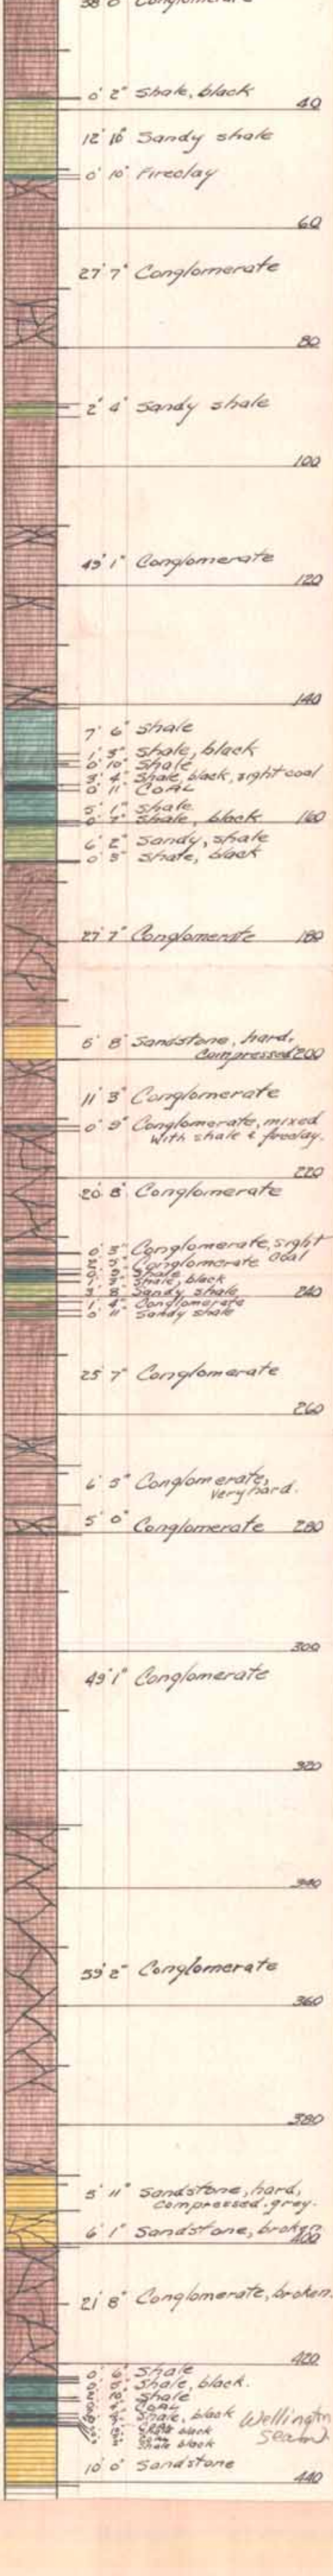 38' 0" Conglomerate
0' 2" Shale, black
40
12' 10" Sandy shale
0' 10" Fireclay
60
27' 7" Conglomerate
80
2' 4" Sandy shale
100
49' 1" Conglomerate
120
140
7' 6" Shale
1' 3" Shale, black
0' 10" Shale
3' 4" Shale, black, sight coal
0' 11" COAL
5' 1" Shale
0' 7" Shale, black 160
6' 2" Sandy, shale
0' 5" Shale, black
27' 7" Conglomerate 180
5' 8" Sandstone, hard,
Compressed 200
11' 3" Conglomerate
0' 9" Conglomerate, mixed
With shale & fireclay.
220
20' 8" Conglomerate
0' 3" Conglomerate, sight
Conglomerate coal
Shale
Shale, black
3' 8" Sandy shale 240
1' 4" Conglomerate
0' 11" Sandy shale
25' 7" Conglomerate
260
6' 5" Conglomerate,
Very hard.
5' 0" Conglomerate 280
300
49' 1" Conglomerate
320
340
59' 2" Conglomerate
360
380
5' 11" Sandstone, hard,
compressed. grey.
6' 1" Sandstone, broken
400
21' 8" Conglomerate, broken.
420
0' 6" Shale
Shale, black.
Shale
COAL
Shale, black Wellington
Seam
Shale black
10' 0" Sandstone
440